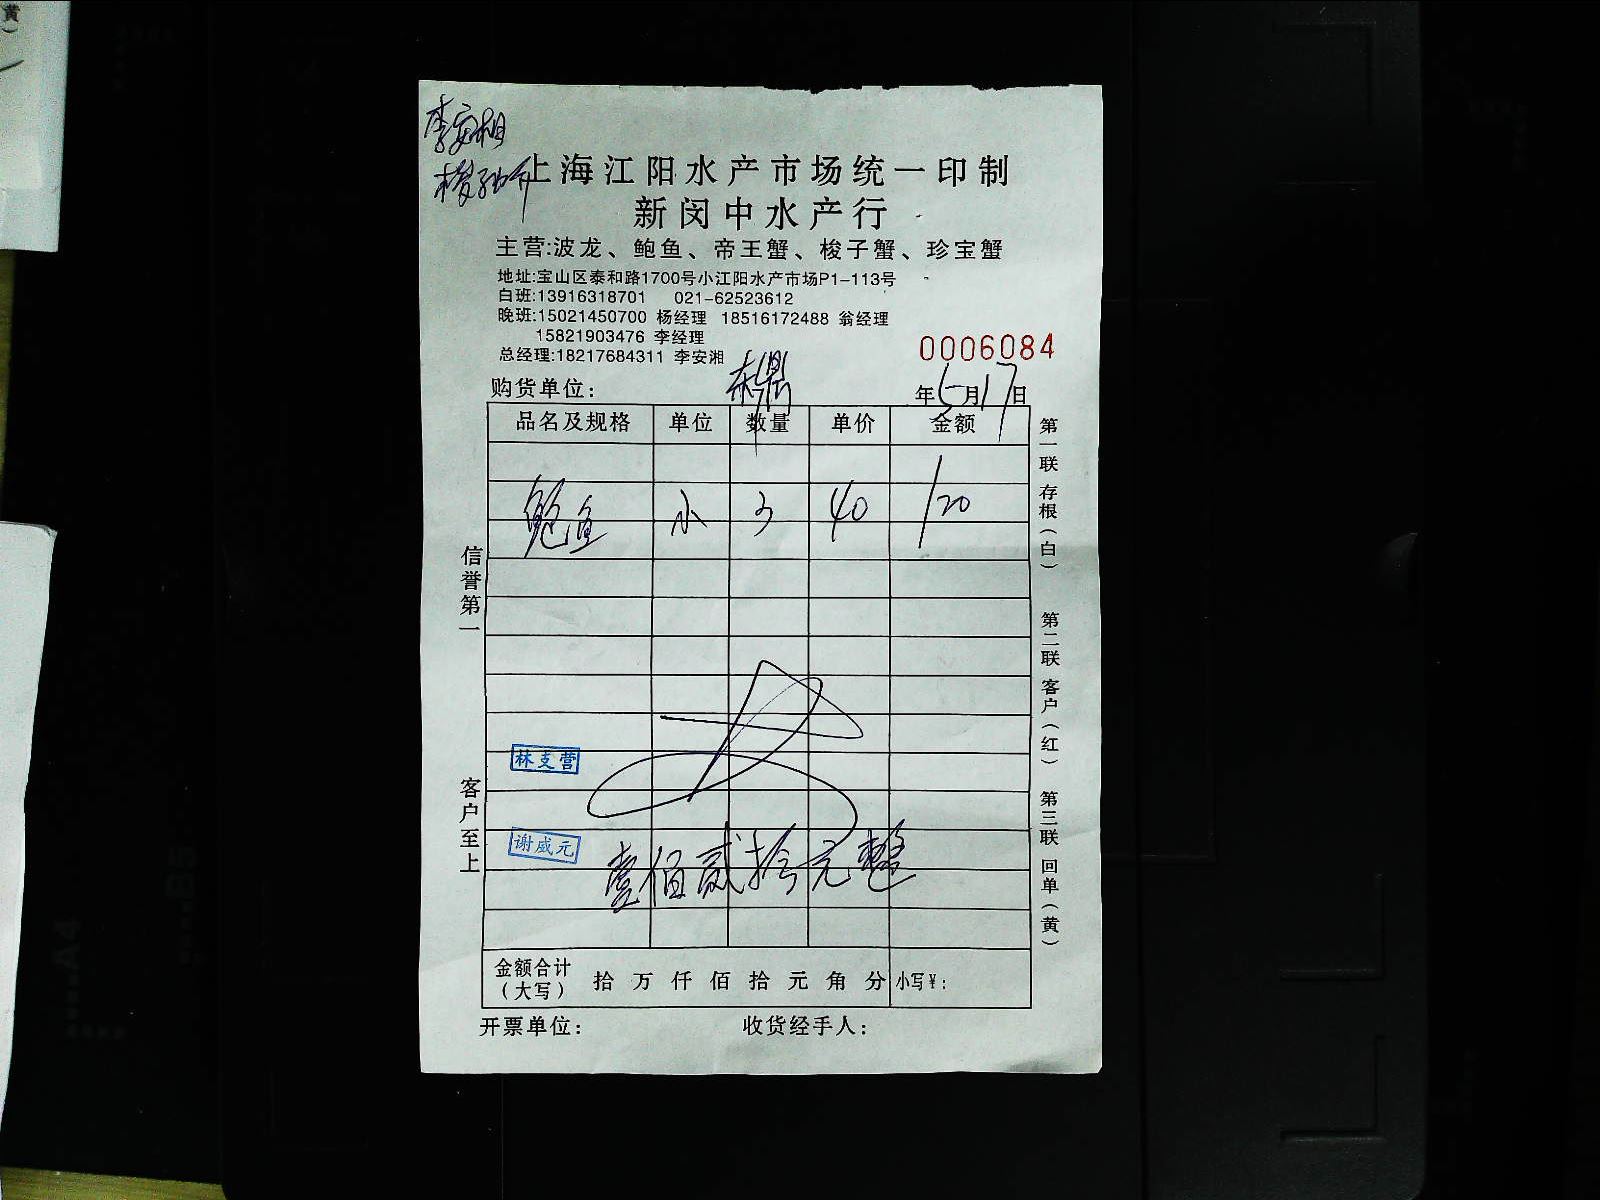 李安湘
上海江阳水产市场统一印制
新闵中水产行
主营:波龙、鲍鱼、帝王蟹、梭子蟹、珍宝蟹
地址:宝山区泰和路1700号小江阳水产市场P1-113号
白班:13916318701 021-62523612
晚班:15021450700 杨经理 18516172488 翁经理
15821903476 李经理
总经理:18217684311 李安湘
0006084
购货单位: 年5月17日
品名及规格 单位 数量 单价 金额
鲍鱼 小 3 40 120
林支营
谢威元
壹佰贰拾元整
金额合计(大写) 拾 万 仟 佰 拾 元 角 分 小写¥:
开票单位: 收货经手人:
信誉第一
客户至上
第一联 存根(白)
第二联 客户(红)
第三联 回单(黄)
黄)
A4
B5